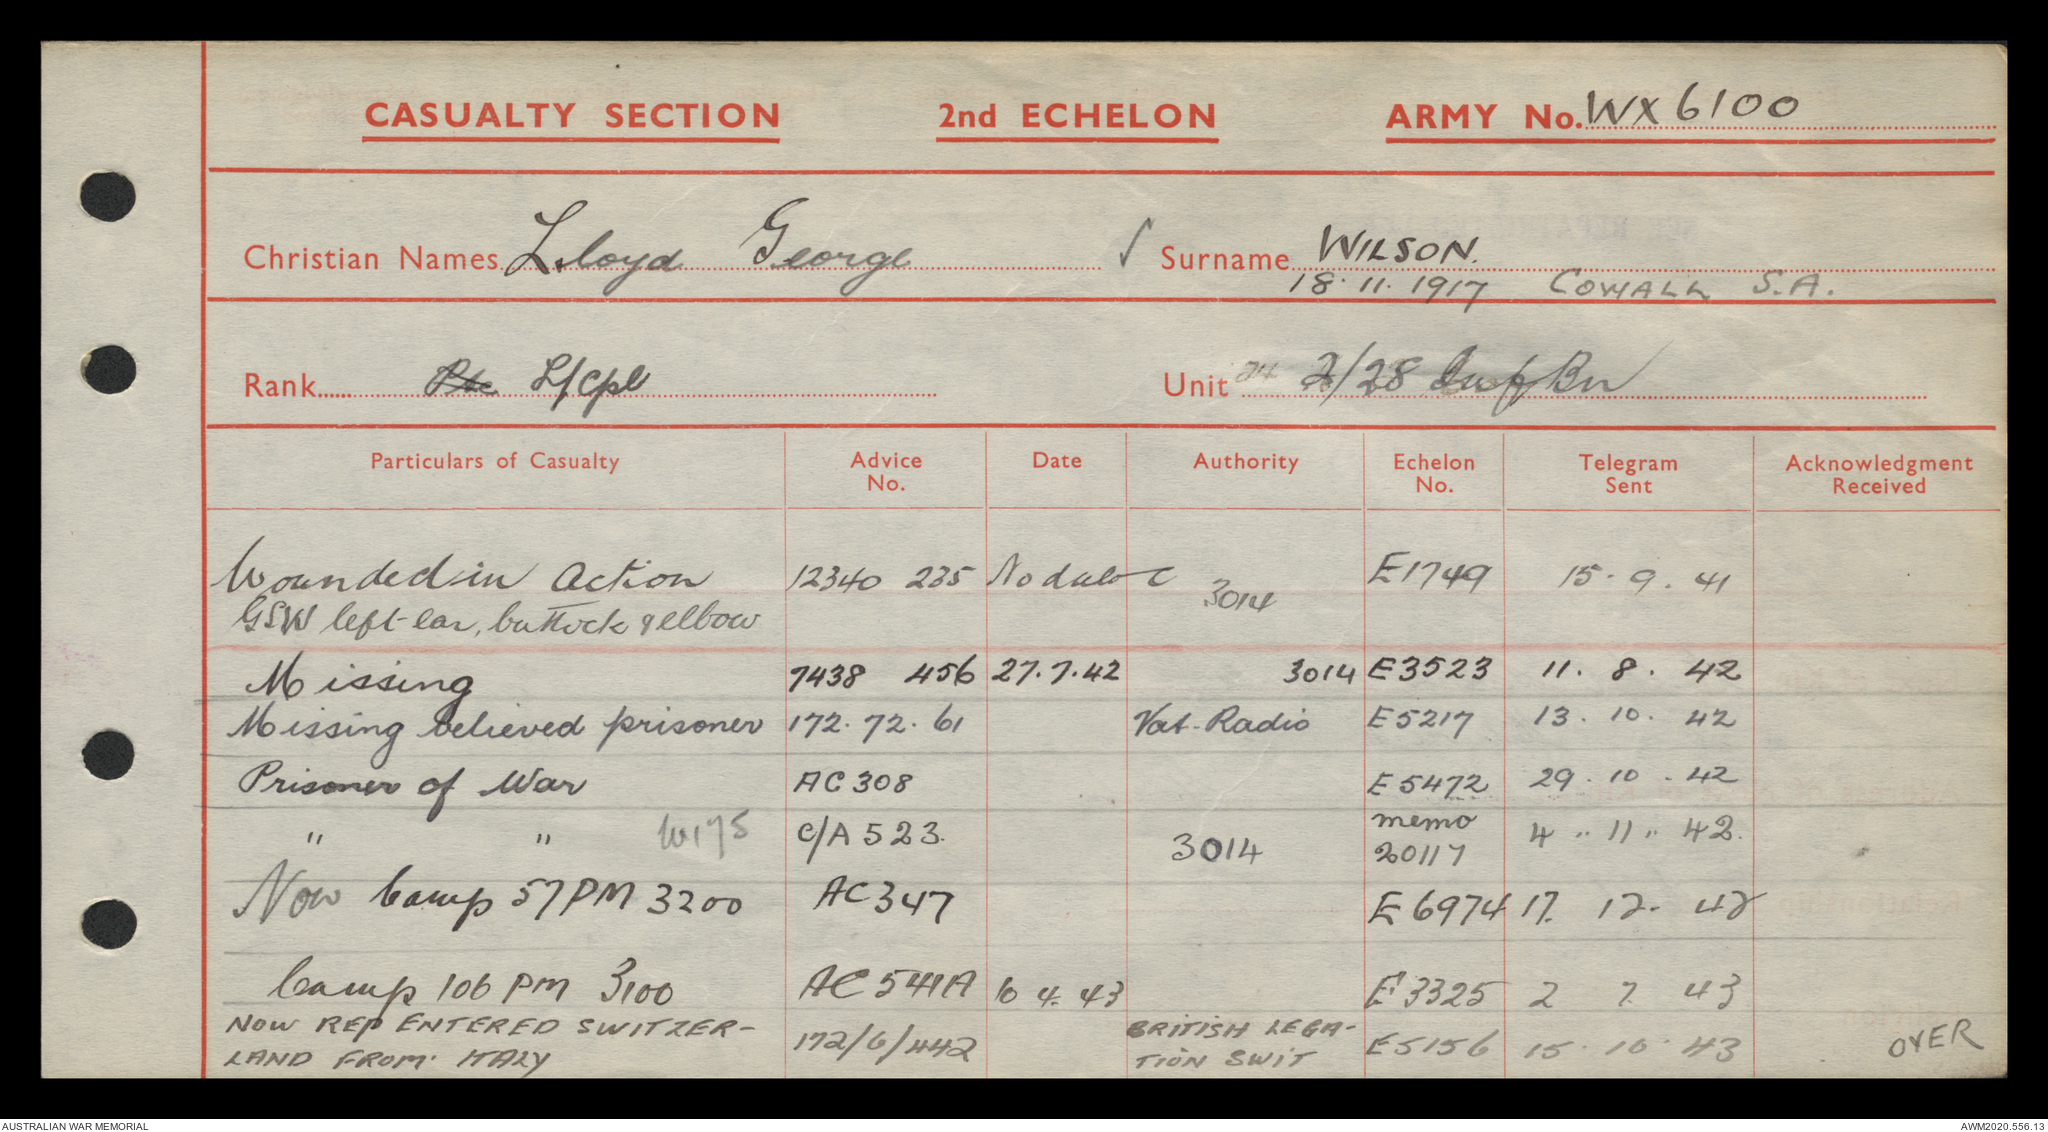 CASUALTY SECTION 2nd ECHELON ARMY No. WX6100
Christian Names Lloyd George Surname WILSON.
18.11.1917 COWALL S.A.
Rank...... Pte L/Cpl Unit 24 2/28 Inf Bn
Particulars of Casualty Advice No. Date Authority Echelon No. Telegram Sent Acknowledgment Received
Wounded in Action 12340 235 No date C 3014 E1749 15.9.41
GSW left ear, buttock & elbow
Missing 7438 456 27.7.42 3014 E3523 11.8.42
Missing believed prisoner 172.72.61 Vat. Radio E5217 13.10.42
Prisoner of War AC308 E5472 29.10.42
" " W175 C/A 523. 3014 memo 20117 4.11.42.
Now Camp 57 PM 3200 AC347 E6974 17.12.42
Camp 106 PM 3100 AC541A 10 4.43 E3325 2 7.43
NOW REP ENTERED SWITZER- 172/6/442 BRITISH LEGA- E5156 15.10.43
LAND FROM ITALY TION SWIT OVER
AUSTRALIAN WAR MEMORIAL AWM2020.556.13